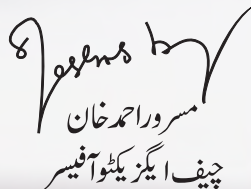 مسرور احمد خان
چیف ایگزیکٹو آفیسر